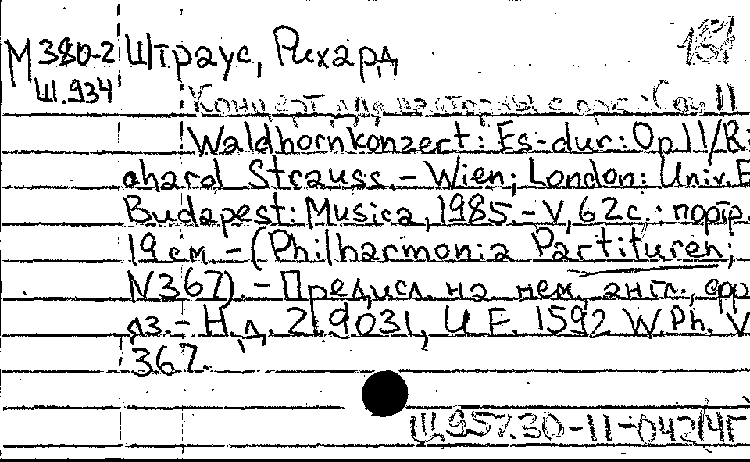 М 380-2 Штраус, Рихард 151
Ш.934
Концерт для валторны с орк.: Соч 11
Waldhornkonzert: Es-dur: Op 11/Ri
chard Strauss. - Wien; London: Univ. E
Budapest: Musica, 1985. - V, 62 с.: портр.
19 см. - (Philharmonia Partituren;
N367). - Предисл. на нем., англ., фр
яз. - Н.д. Z1.9031, U E. 1592 W.Ph. V
367.
Щ957.30-11-042/4Г